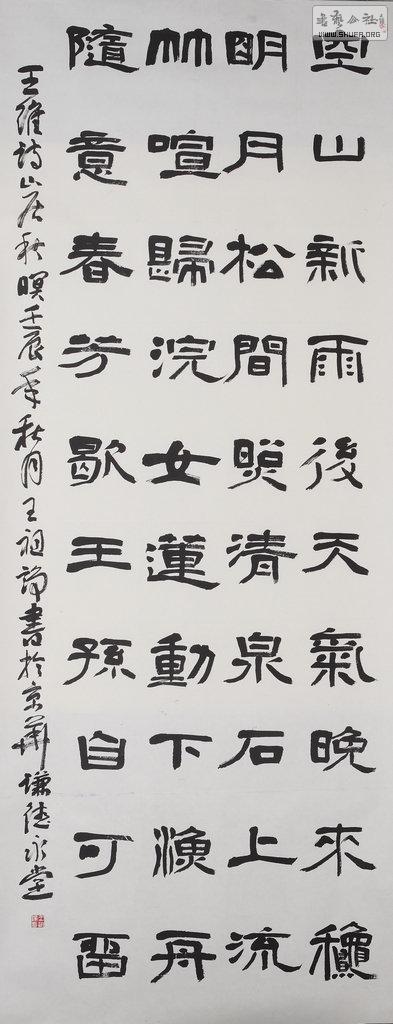 空山新雨後天氣晚來龝
朙月松間照清泉石上流
竹喧歸浣女蓮動下漁舟
隨意春芳歇王孫自可畱
王維詩山居秋暝壬辰年秋月王祖諤書於京華壕德永堂
書藝公社
WWW.SHUFA.ORG